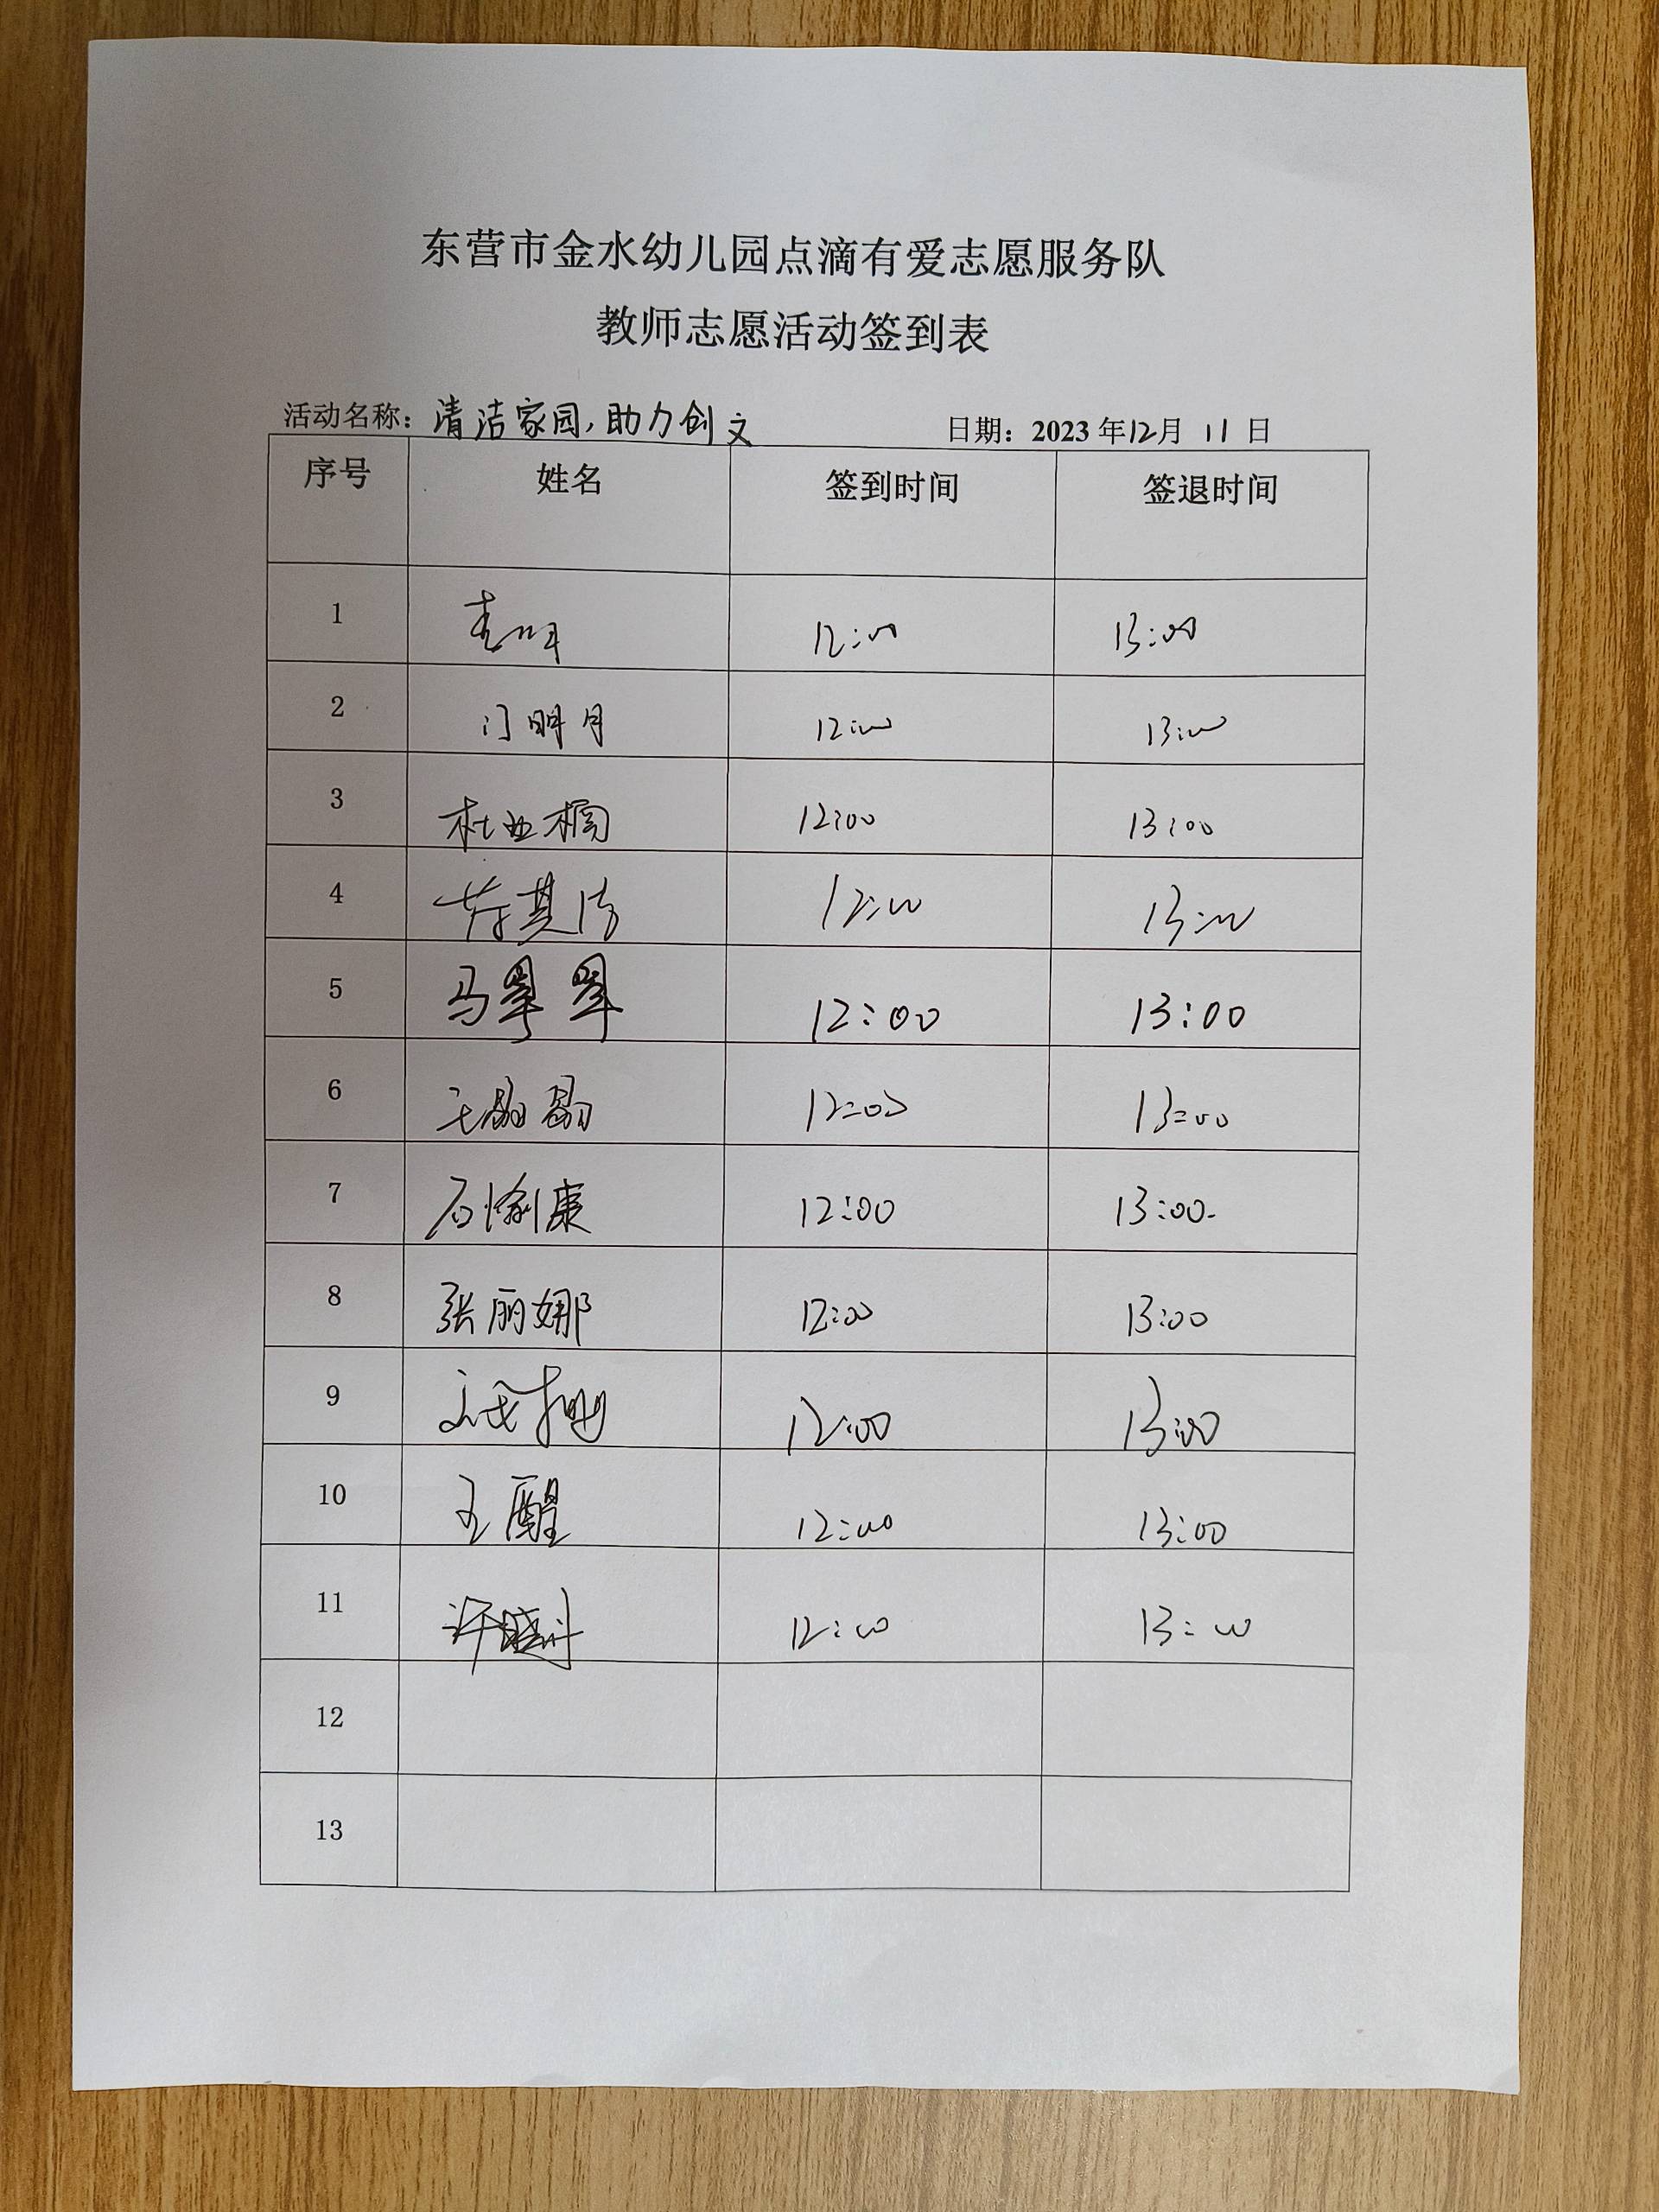 东营市金水幼儿园点滴有爱志愿服务队
教师志愿活动签到表
活动名称：清洁家园，助力创文 日期：2023年12月11日
序号 姓名 签到时间 签退时间
1 12:00 13:00
2 门明月 12:00 13:00
3 杜亚楠 12:00 13:00
4 12:00 13:00
5 马翠翠 12:00 13:00
6 王晶晶 12:00 13:00
7 石愉康 12:00 13:00
8 张丽娜 12:00 13:00
9 12:00 13:00
10 王醒 12:00 13:00
11 许晓丹 12:00 13:00
12
13